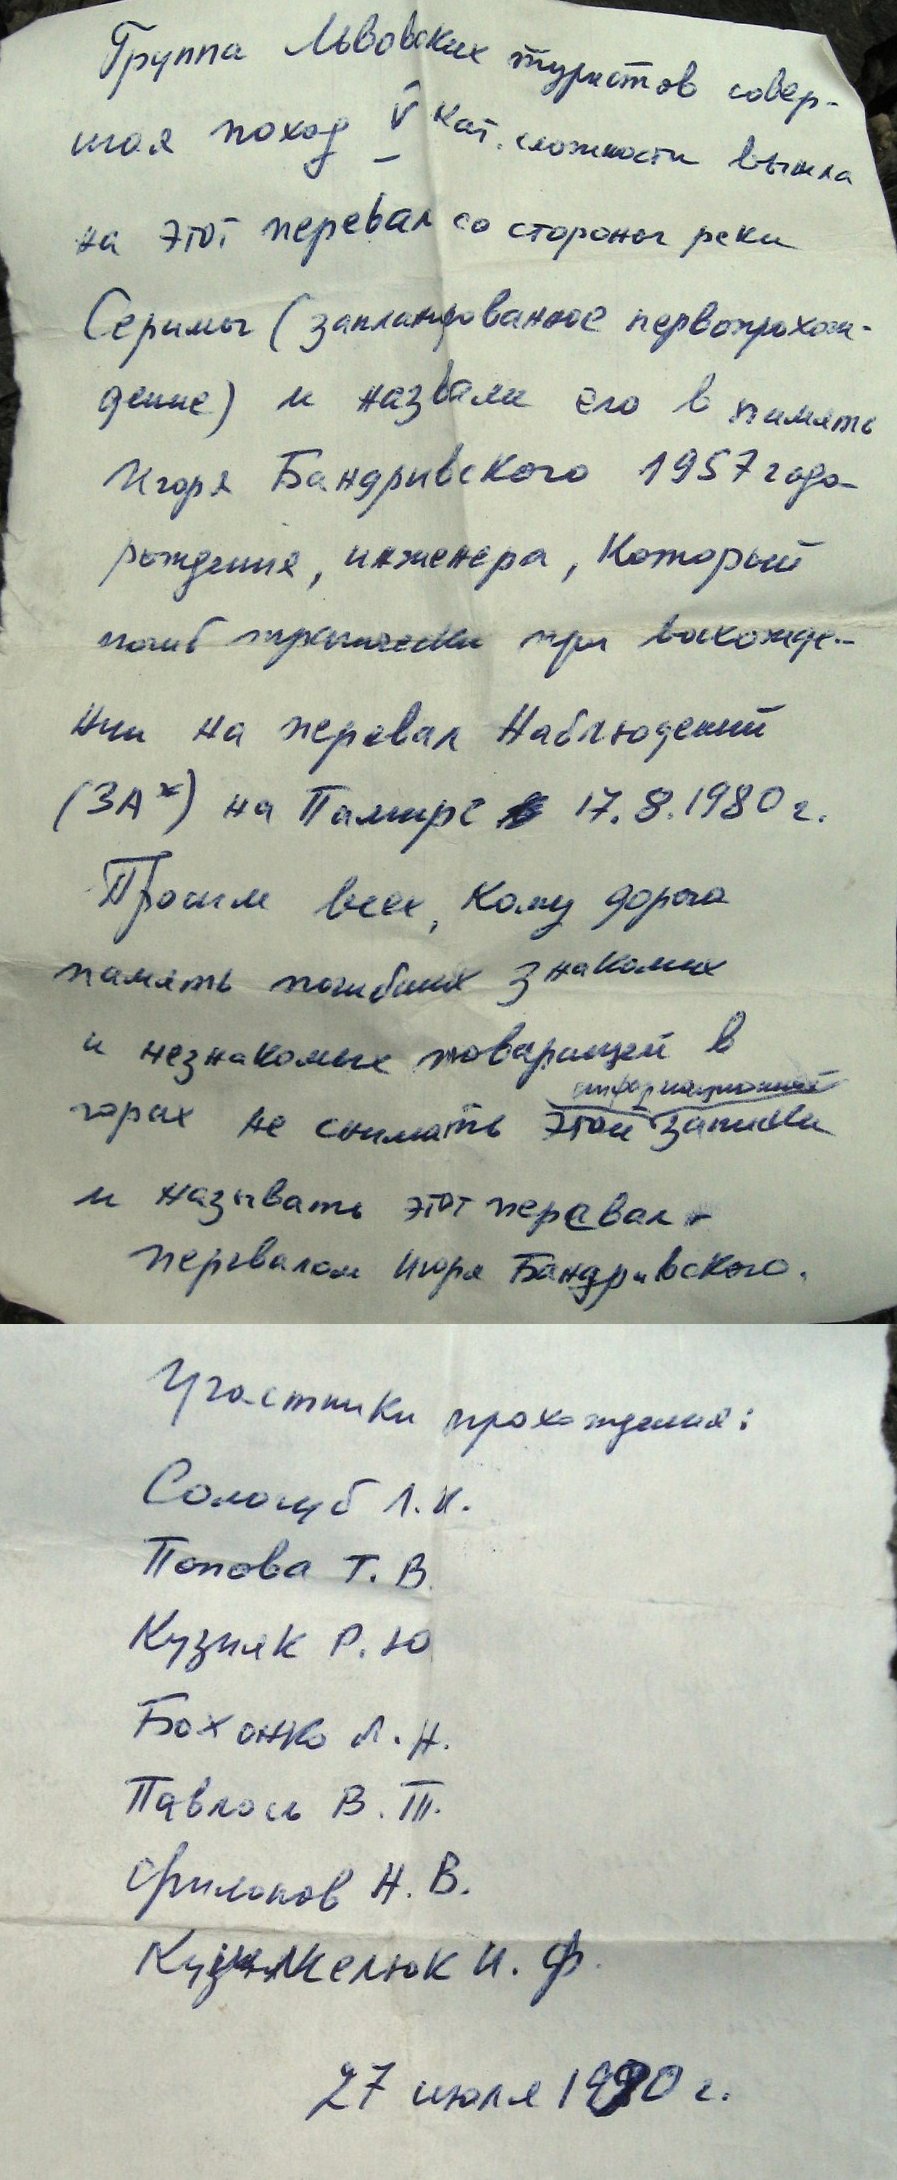 Группа Львовских туристов совер-
шая поход V кат. сложности вышла
на этот перевал со стороны реки
Серимы (запландованное первопрохож-
дение) и назвали его в память
Игоря Бандривского 1957 года
рождения, инженера, который
погиб трагически при восхожде-
нии на перевал Наблюдений
(3А*) на Памире 17.8.1980 г.
Просим всех, кому дорога
память погибших знакомых
и незнакомых товарищей в
информационной
горах не снимать этой записки
и называть этот перевал -
перевалом Игоря Бандривского.
Участники прохождения:
Сологуб Л.И.
Попова Т. В.
Кузняк Р. Ю
Бохонко Л. Н.
Павлось В. Т.
Филопов Н. В.
И. Ф.
27 июля 19 г.